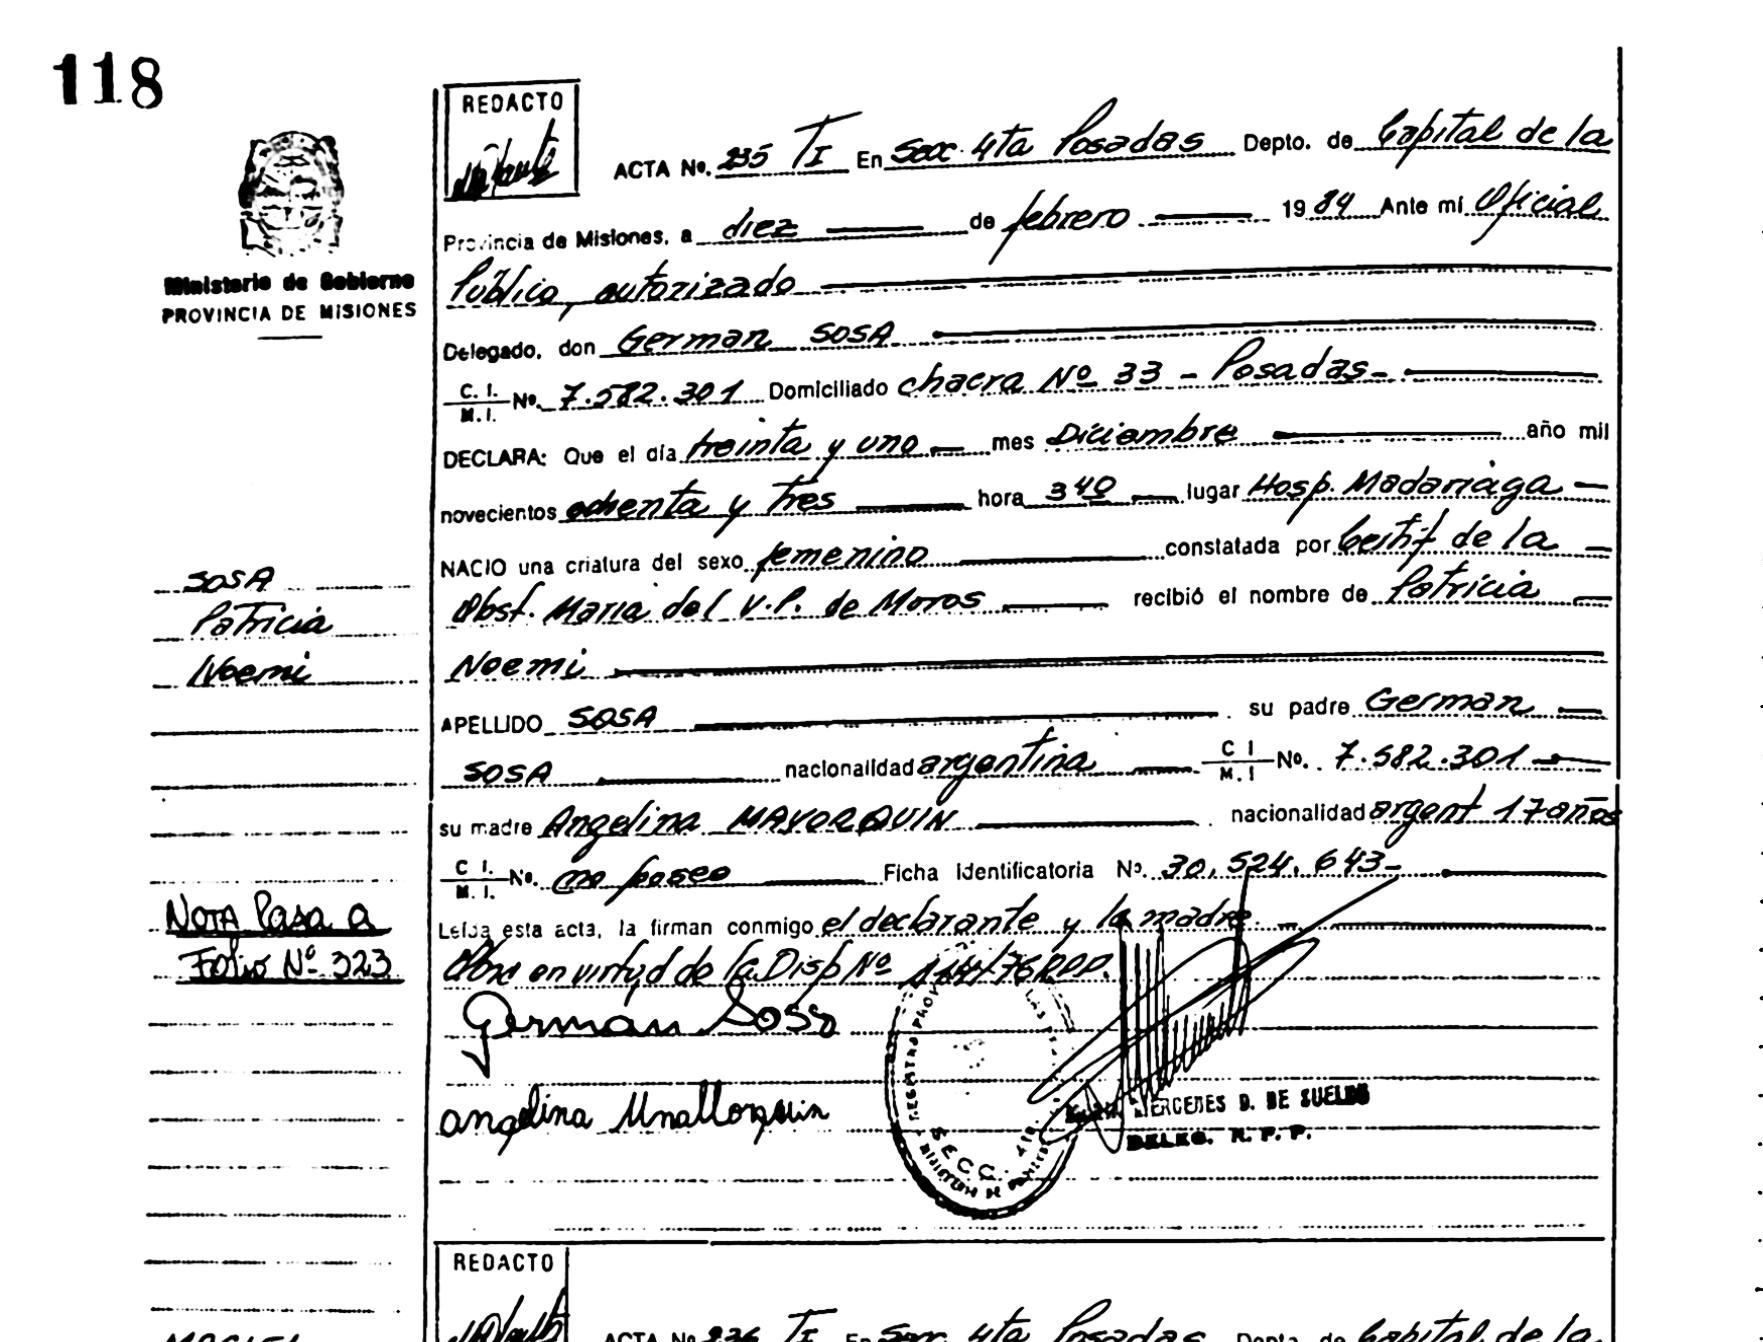 118
REDACTO
ACTA Nº. 235 TI En Secc. 4ta Posadas Depto. de Capital de la
Provincia de Misiones, a diez de febrero 1984 Ante mi Oficial
Ministerio de Gobierno
Público, autorizado
PROVINCIA DE MISIONES
Delegado, don German SOSA
C. I. M. I. Nº. 7.582.301 Domiciliado chacra Nº 33 - Posadas-
DECLARA: Que el día treinta y uno mes Diciembre año mil
novecientos ochenta y tres hora 340 lugar Hosp. Madariaga
NACIO una criatura del sexo femenino constatada por Certif de la
SOSA
Obst. Maria del V.P. de Moros recibió el nombre de Patricia
Patricia
Noemi
Noemi
APELLIDO SOSA su padre German
SOSA nacionalidad argentina C I M. I Nº. 7.582.301
su madre Angelina MAYORQUIN nacionalidad argent 17 años
C I. M. I. Nº. no posee Ficha Identificatoria Nº. 30.524.643-
NOTA Pasa a
Leída esta acta, la firman conmigo el declarante y la madre.
Folio Nº 323
en virtud de la Disp Nº
German Sosa
angelina
MERCEDES D. DE SUELDO
DELEG. R. P. P.
SECC. 4ta
REDACTO
ACTA Nº 236 TI En Secc 4ta Posadas Depto. de Capital de la